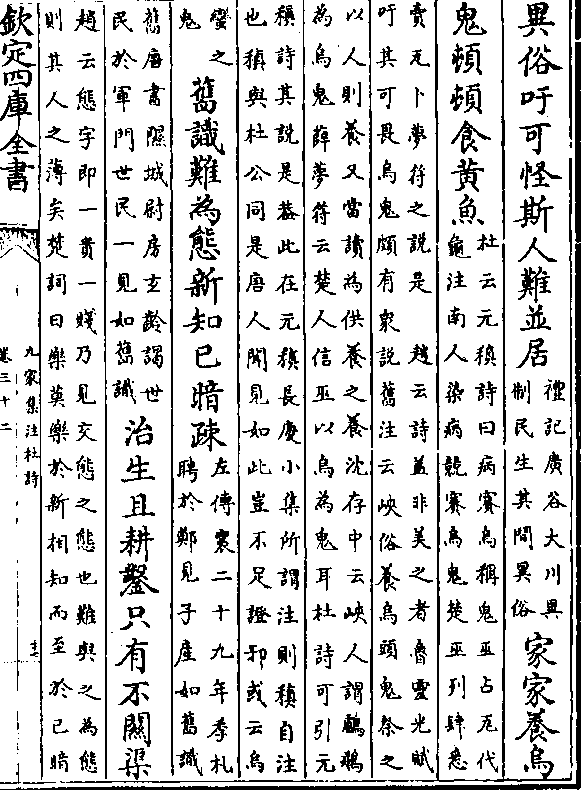 異俗吁可怪斯人難並居
禮記廣谷大川異
制民生其間異俗
家家養烏
鬼頓頓食黄魚
杜云元稹詩曰病賽烏稱鬼巫占瓦代
龜注南人染病競賽烏鬼楚巫列肆悉
賣瓦卜夢符之說是 趙云詩蓋非美之者魯靈光賦
吁其可畏烏鬼頗有衆說舊注云峽俗養烏頭鬼祭之
以人則養又當讀為供養之養沈存中云峽人謂鸕鷀
為烏鬼薛夢符云楚人信巫以烏為鬼耳杜詩可引元
稹詩其說是葢此在元稹長慶小集所謂注則稹自注
也稹與杜公同是唐人聞見如此豈不足證邪或云烏
蠻之
鬼
舊識難為態新知已暗疎
左傳襄二十九年季札
聘於鄭見子産如舊識
舊唐書隰城尉房玄齡謁世
民於軍門世民一見如舊識
治生且耕鑿只有不關渠
趙云態字即一貴一賤乃見交態之態也難與之為態
則其人之薄矣楚詞曰樂莫樂於新相知而至於已暗
欽定四庫全書
九家集注杜詩
卷三十二